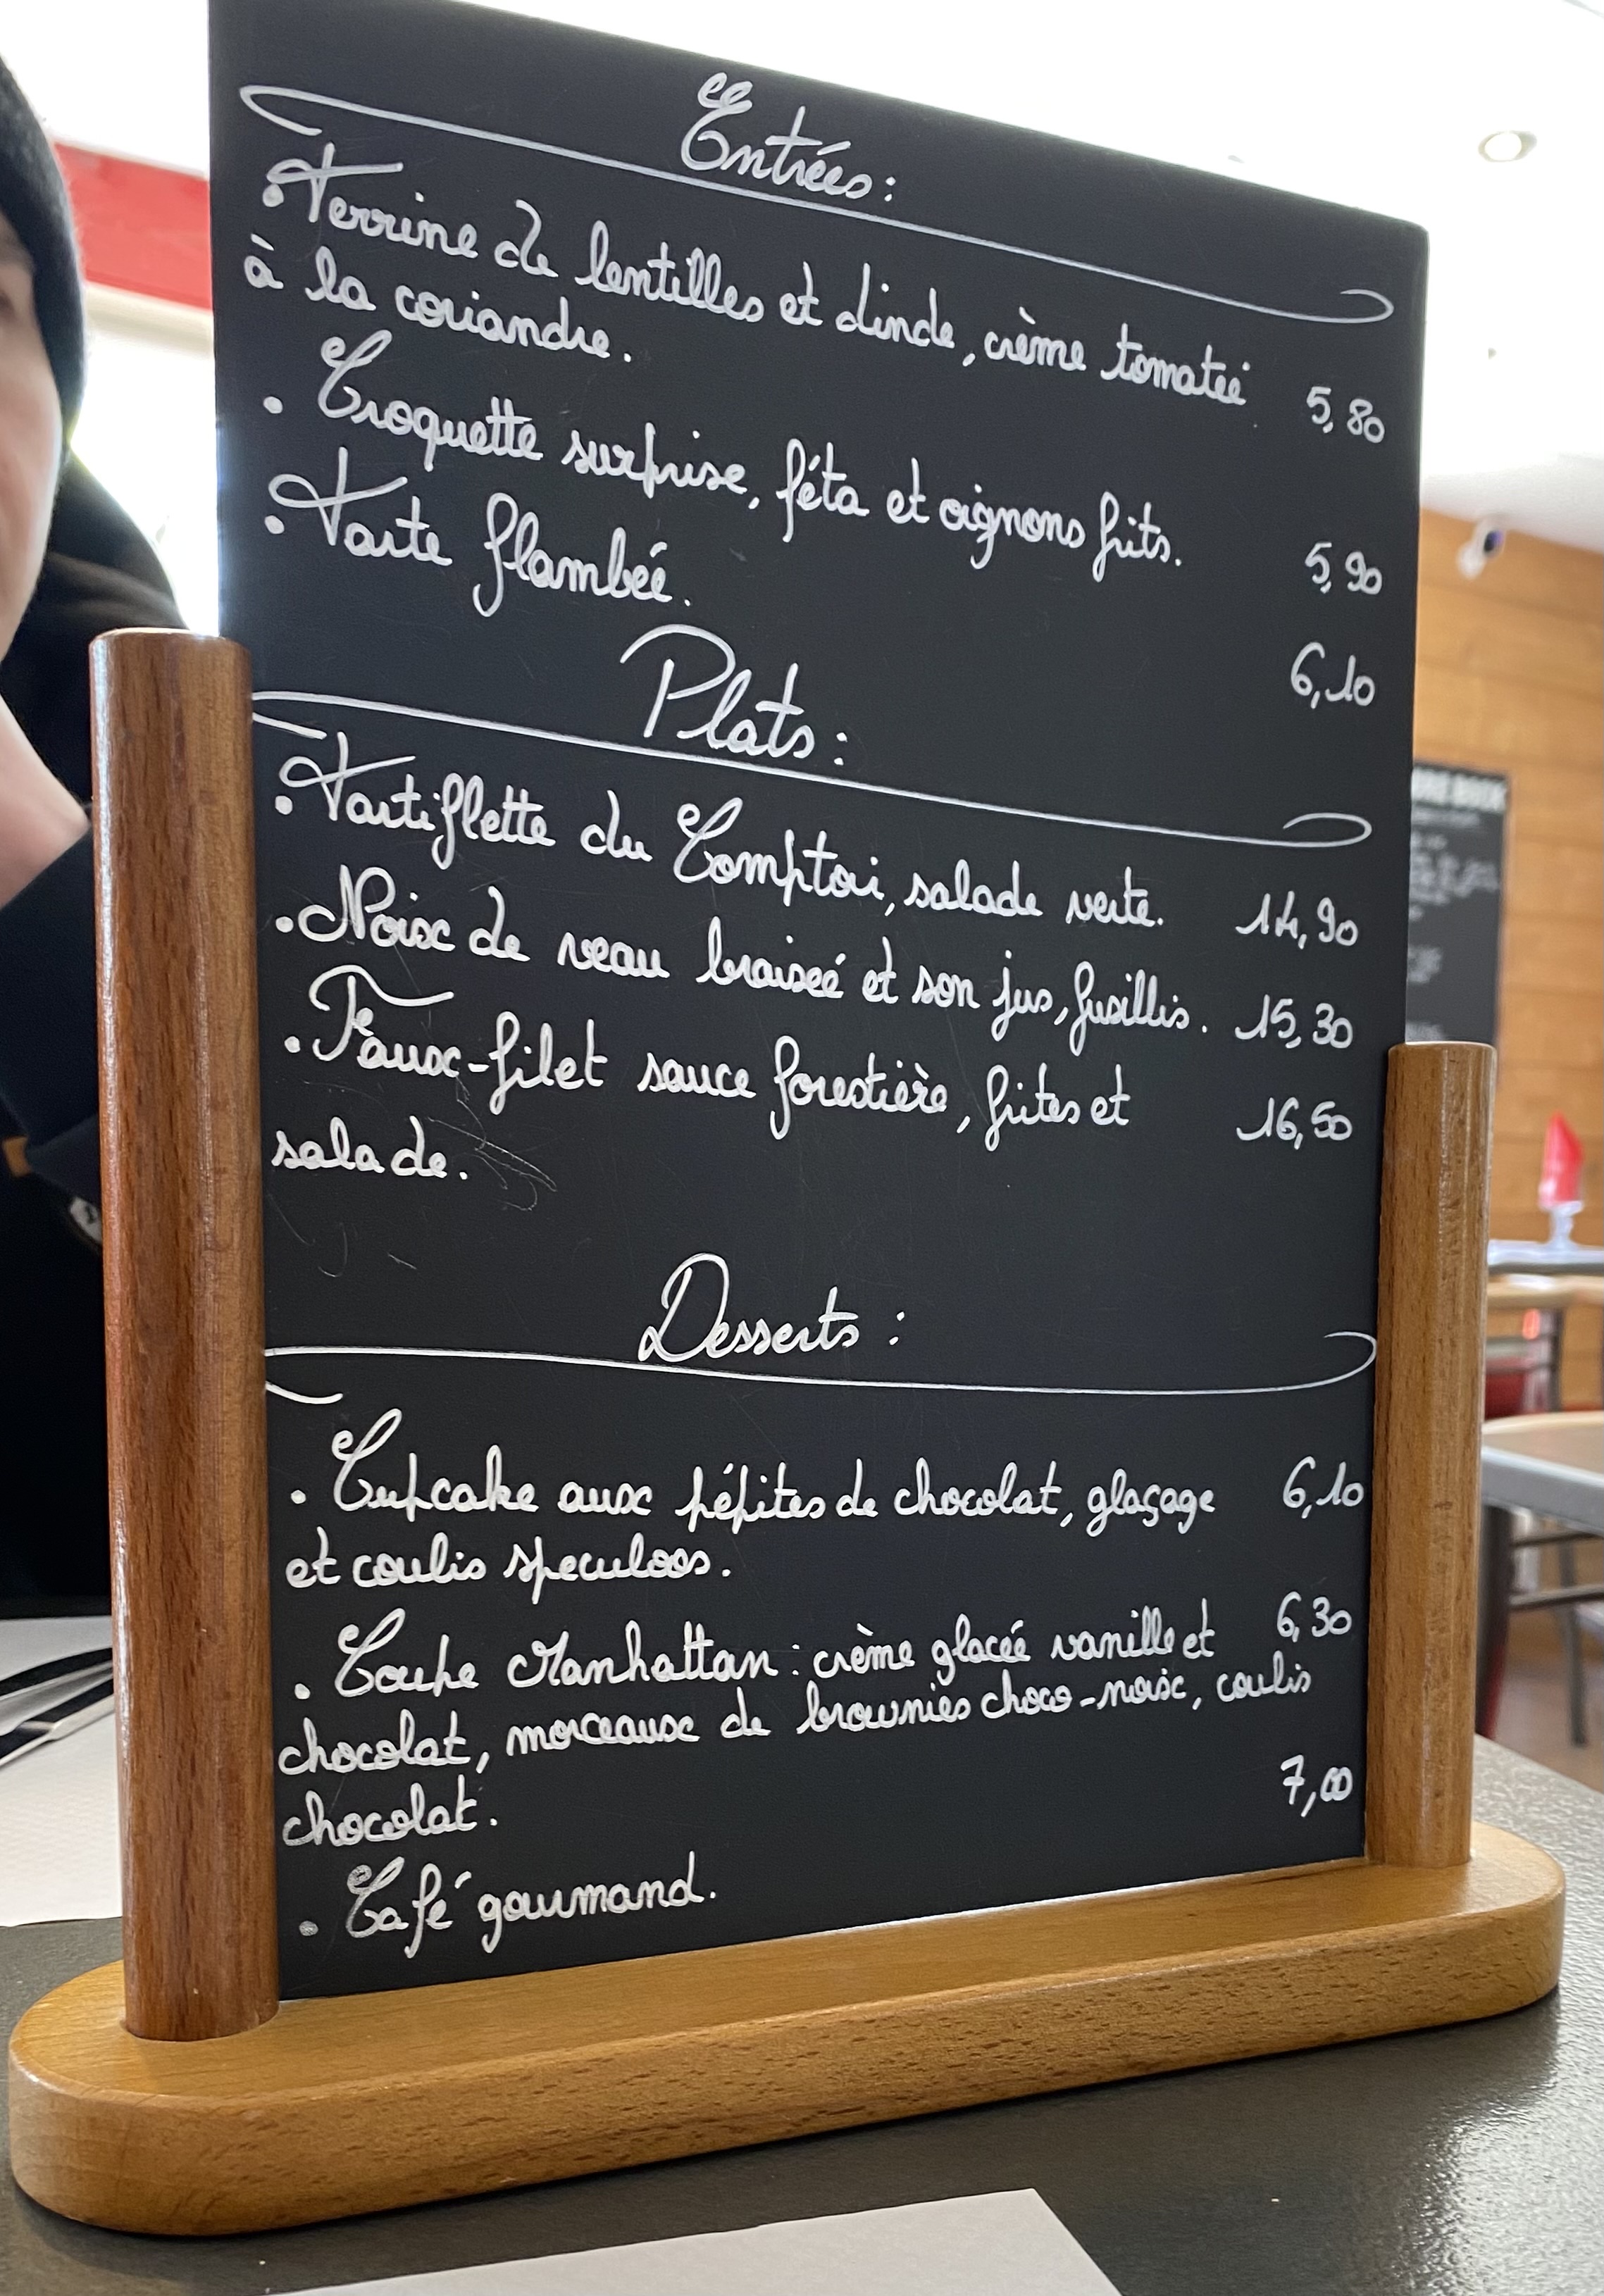 Entrées :
• Terrine de lentilles et dinde, crème tomatée 5,80
à la coriandre.
• Croquette surprise, féta et oignons frits. 5,90
• Tarte flambée. 6,10
Plats :
• Tartiflette du Comptoir, salade verte. 14,90
• Noix de veau braisée et son jus, fusillis. 15,30
• Faux-filet sauce forestière, frites et 16,50
salade.
Desserts :
• Cupcake aux pépites de chocolat, glaçage 6,10
et coulis speculoos.
• Coupe Manhattan : crème glacée vanille et 6,30
chocolat, morceaux de brownies choco-noix, coulis
chocolat. 7,00
• Café gourmand.